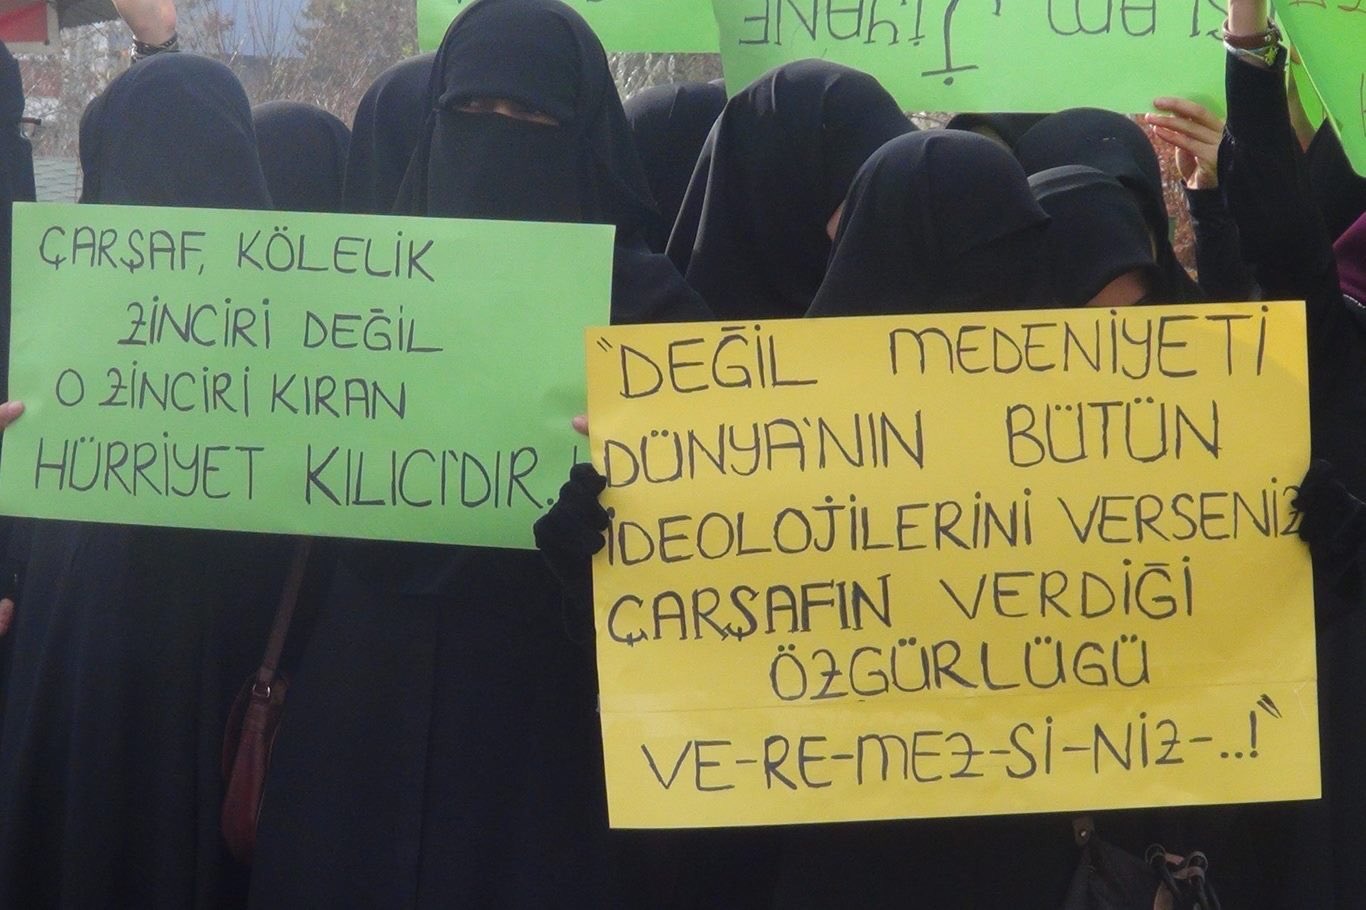 ÇARŞAF, KÖLELİK
ZİNCİRİ DEĞİL
O ZİNCİRİ KIRAN
HÜRRİYET KILICI'DIR.
"DEĞİL MEDENİYETİ
DÜNYA'NIN BÜTÜN
İDEOLOJİLERİNİ VERSENİZ
ÇARŞAF'IN VERDİĞİ
ÖZGÜRLÜĞÜ
VE-RE-MEZ-Sİ-NİZ-..!"